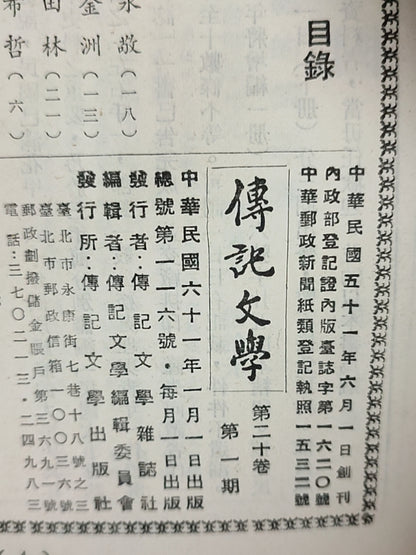 目錄
永敬(一八)
金洲(一三)
田林(二一)
希哲(六)
中華民國五十一年六月一日創刊
內政部登記證內版臺誌字第一六二〇號
中華郵政新聞紙類登記執照一五三二號
傳記文學
第二十卷
第一期
中華民國六十一年一月一日出版
總號第一一六號・每月一日出版
發行者：傳記文學雜誌社
編輯者：傳記文學編輯委員會
發行所：傳記文學出版社
臺北市永康街七巷十八號之三
臺北市郵政信箱一〇〇三六號
郵政劃撥儲金賬戶第三六九一號
電話：三七〇二一三・二四九八三